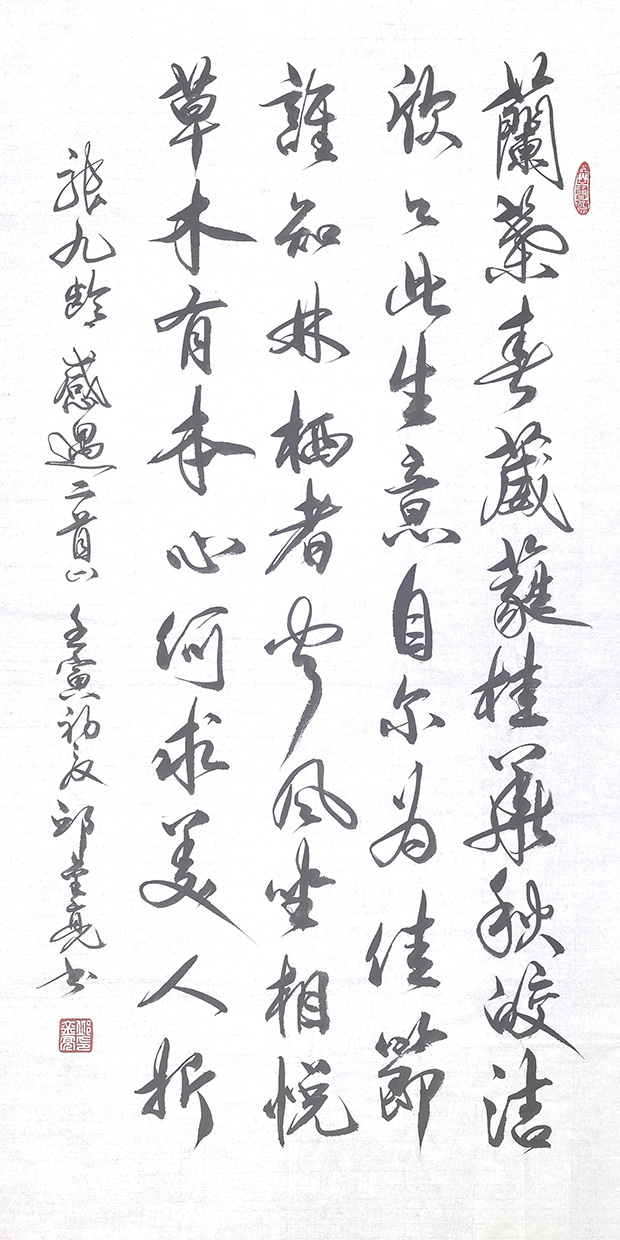 蘭葉春葳蕤桂華秋皎洁
欣々此生意自尔为佳節
誰知林栖者闻风坐相悦
草木有本心何求美人折
張九齡感遇二首 壬寅初夏邱金亮书